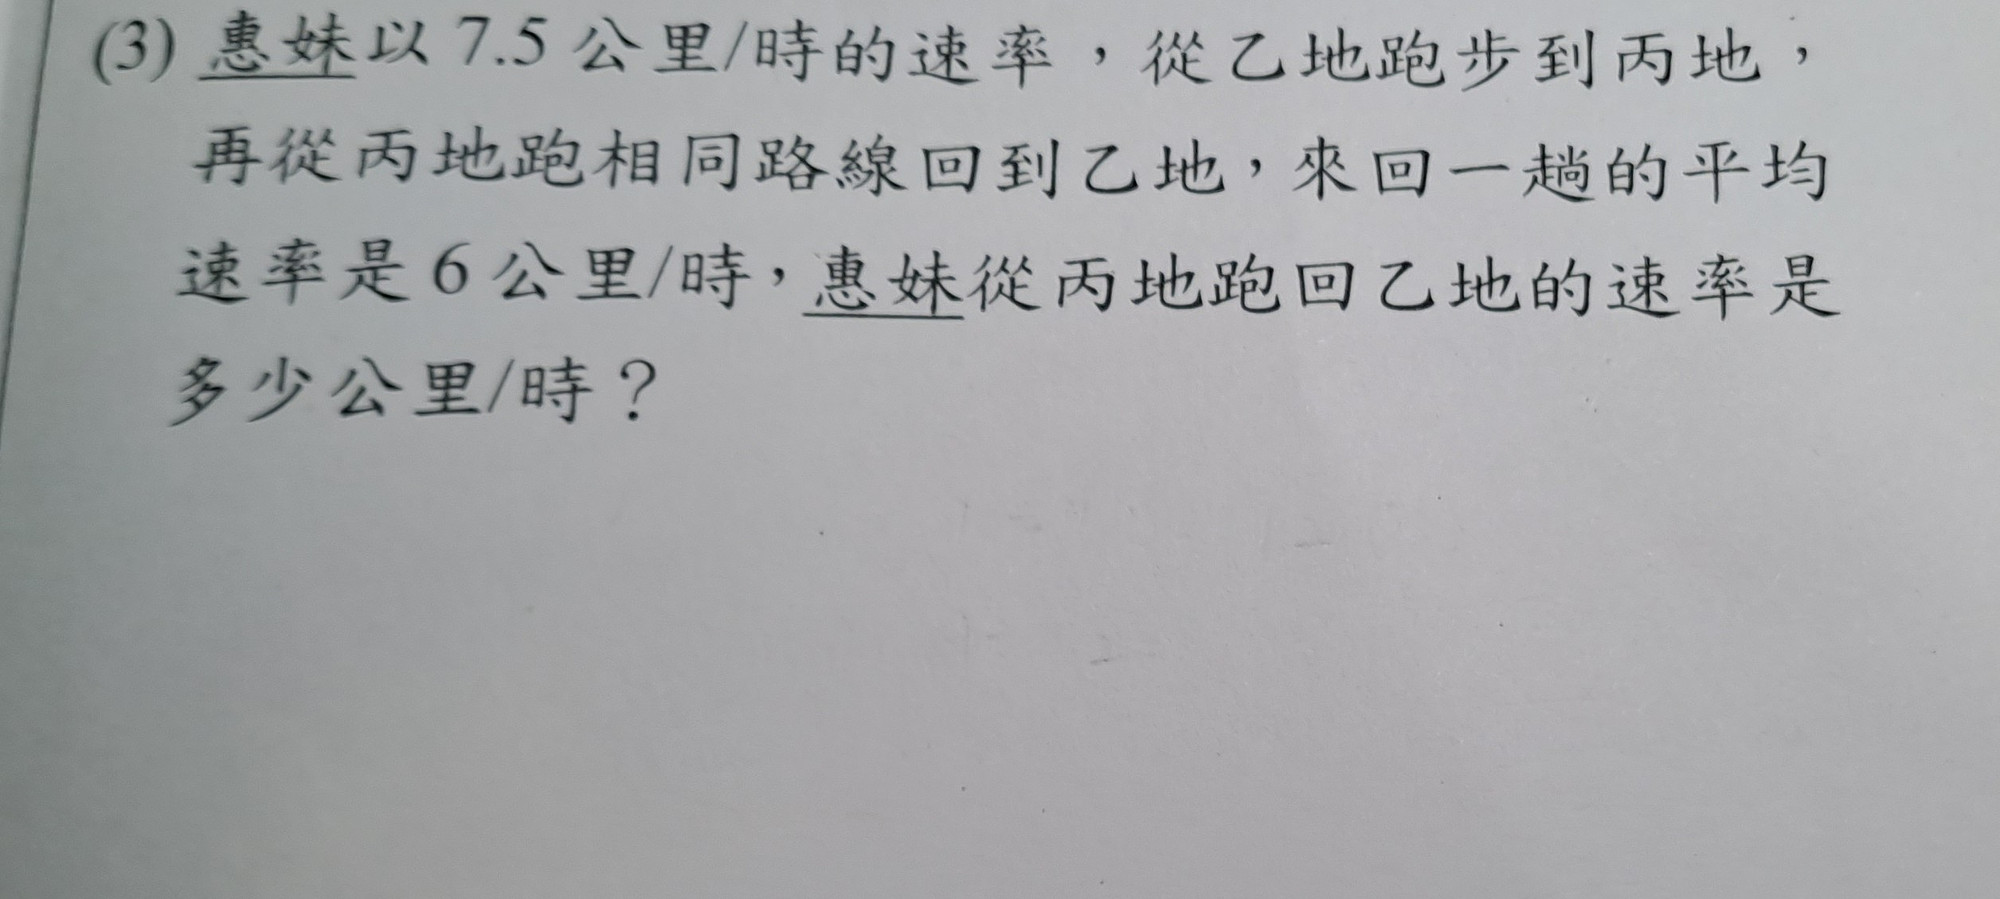 (3) 惠妹以 7.5 公里/時的速率，從乙地跑步到丙地，
再從丙地跑相同路線回到乙地，來回一趟的平均
速率是 6 公里/時，惠妹從丙地跑回乙地的速率是
多少公里/時？